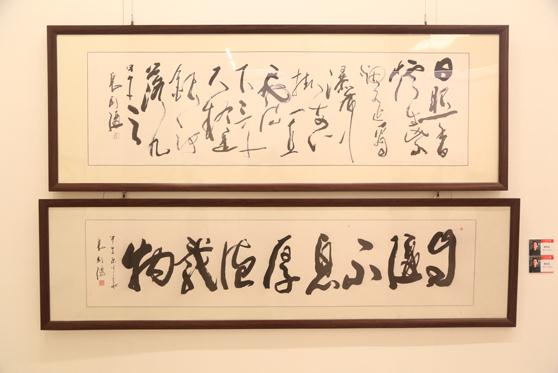 日照香
爐生紫
烟遥看
瀑布
掛前川
飛流直
下三千
尺疑是
銀河
落九
天
自彊不息厚德載物